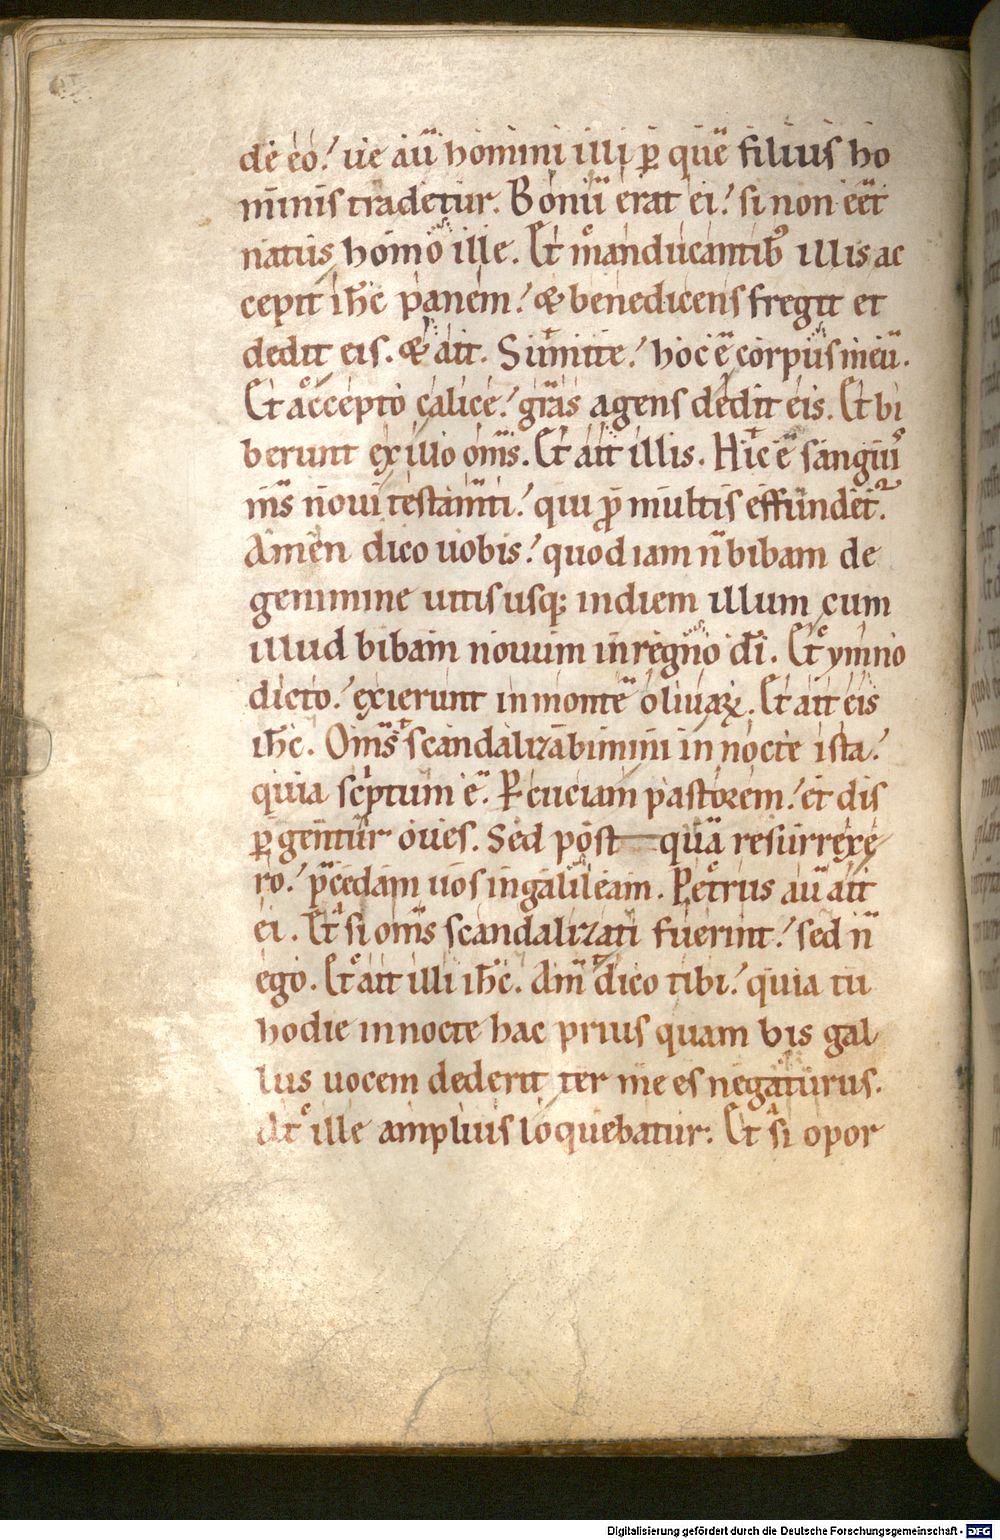 de eo. ue aū homini illi ꝑ quē filius ho
minis tradetur. Bonū erat ei. si non eēt
natus homo ille. Et manducantibꝰ illis ac
cepit ihc̄ panem. & benedicens fregit et
dedit eis. & ait. Sumite. hoc ē corpus meū.
Et accepto calice. grās agens dedit eis. Et bi
berunt ex illo om̄s. Et ait illis. Hic ē sanguis
m̄s noui testam̄ti. qui ꝓ multis effundet᷑.
Amen dico uobis. quod iam n̄ bibam de
genimine uitis usq; in diem illum cum
illud bibam nouum in regno dī. Et ymno
dicto. exierunt in montē oliuaꝝ. Et ait eis
ihc̄. Om̄s scandalizabimini in nocte ista.
quia scptum ē. Ꝑcuciam pastorem. et dis
ꝑgentur oues. Sed post quā resurrexe
ro. p̄cedam uos in galileam. Petrus aū ait
ei. Et si om̄s scandalizati fuerint. sed n̄
ego. Et ait illi ihc̄. Am̄ dico tibi. quia tu
hodie in nocte hac prius quam bis gal
lus uocem dederit ter me es negaturus.
At ille amplius loquebatur: Et si opor
Digitalisierung gefördert durch die Deutsche Forschungsgemeinschaft - DFG